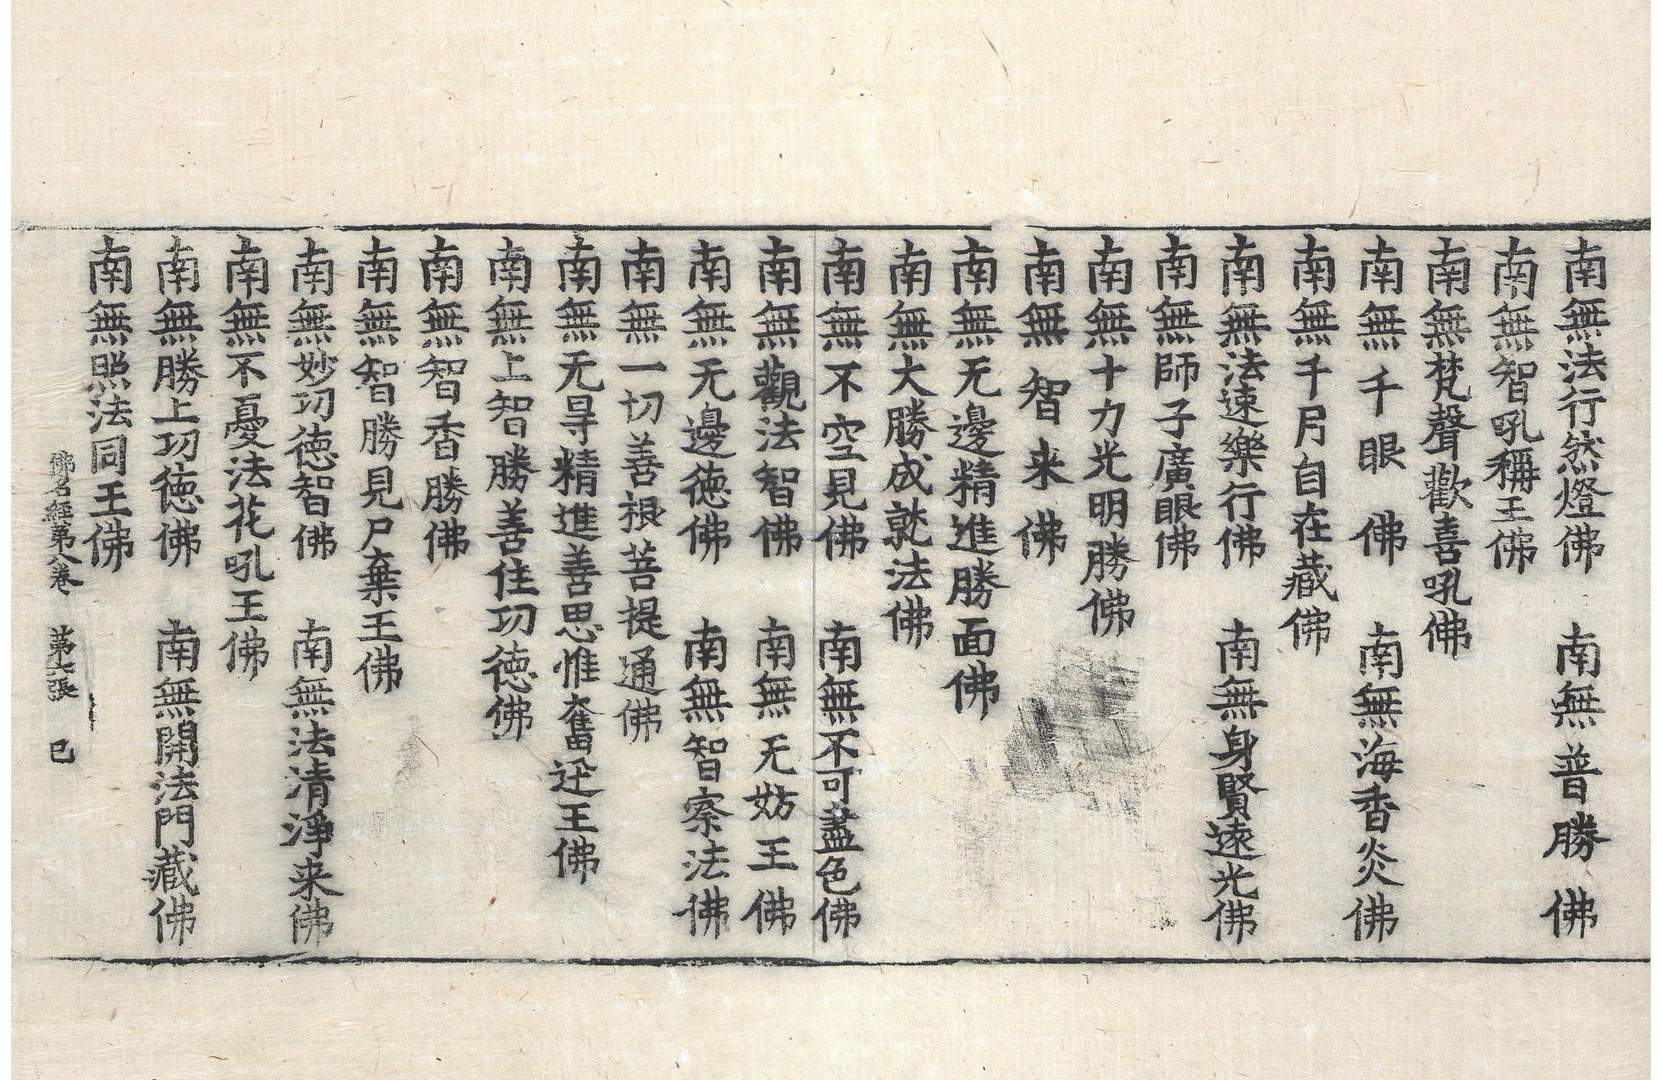 南無法行然燈佛　南無普勝佛
南無智吼稱王佛
南無梵聲歡喜吼佛
南無千眼佛　南無海香炎佛
南無千月自在藏佛
南無法速樂行佛　南無身賢遠光佛
南無師子廣眼佛
南無十力光明勝佛
南無智来佛
南無无邊精進勝面佛
南無大勝成就法佛
南無不空見佛　南無不可盡色佛
南無觀法智佛　南無无妨王佛
南無无邊德佛　南無智察法佛
南無一切善根菩提通佛
南無无㝵精進善思惟奮迅王佛
南無上智勝善住功德佛
南無智香勝佛
南無智勝見尸棄王佛
南無妙功德智佛　南無法清淨来佛
南無不憂法花吼王佛
南無勝上功德佛　南無開法門藏佛
南無照法同王佛
佛名經第八卷　第七張　已